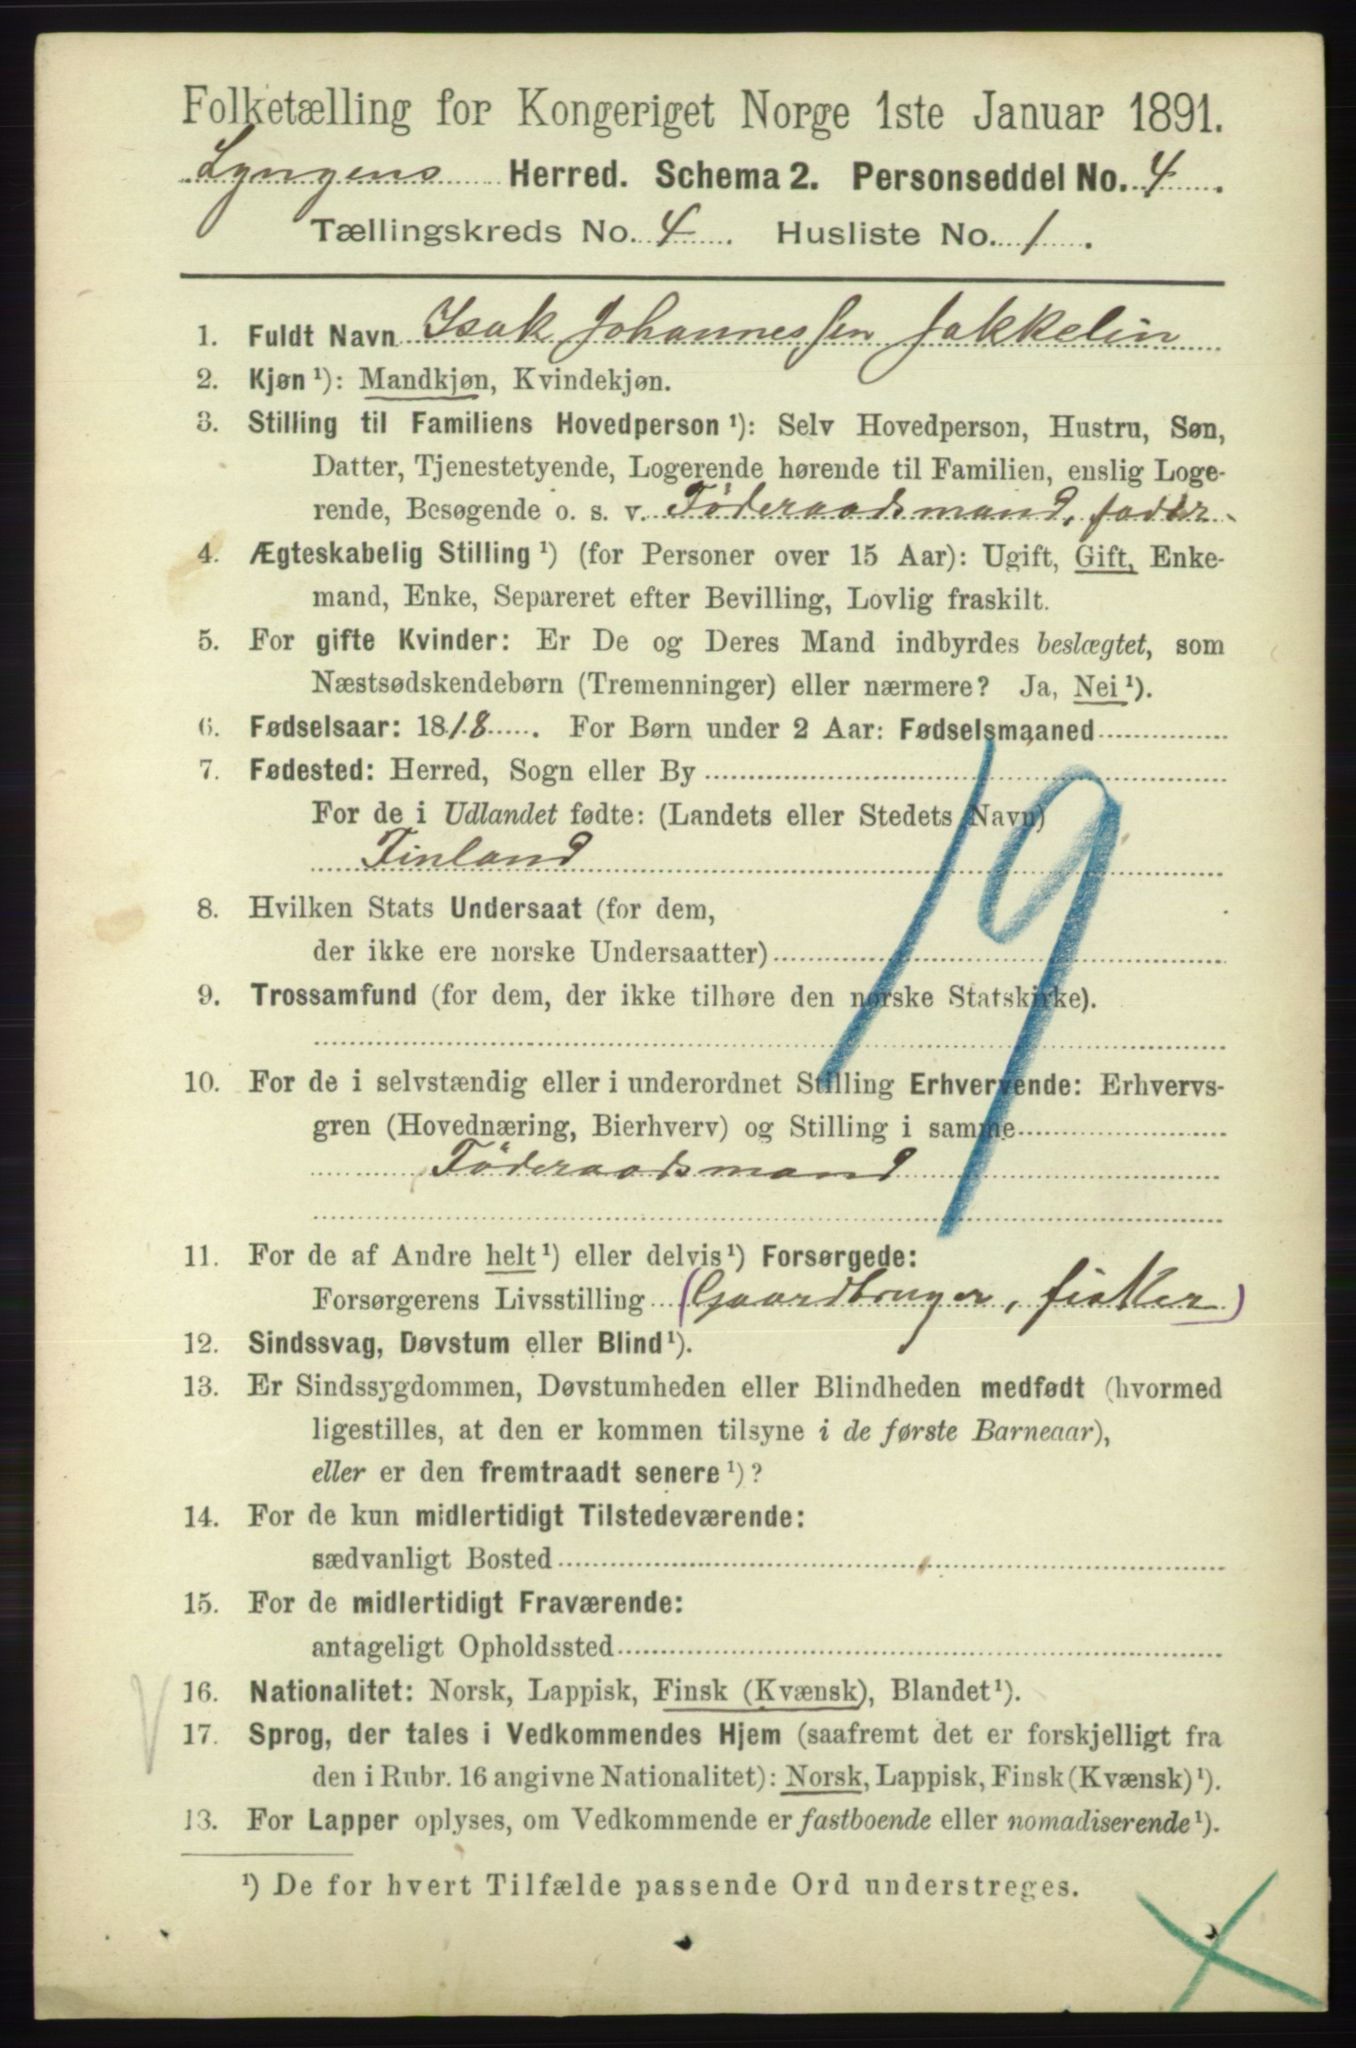 Folketælling for Kongeriget Norge 1ste Januar 1891.
Lyngens Herred. Schema 2. Personseddel No. 4.
Tællingskreds No. 4. Husliste No. 1.
1. Fuldt Navn Isak Johannessen Jakkelin
2. Kjøn ¹): Mandkjøn, Kvindekjøn.
3. Stilling til Familiens Hovedperson ¹): Selv Hovedperson, Hustru, Søn,
Datter, Tjenestetyende, Logerende hørende til Familien, enslig Loge-
rende, Besøgende o. s. v. Föderaadsmand, fader
4. Ægteskabelig Stilling ¹) (for Personer over 15 Aar): Ugift, Gift, Enke-
mand, Enke, Separeret efter Bevilling, Lovlig fraskilt.
5. For gifte Kvinder: Er De og Deres Mand indbyrdes beslægtet, som
Næstsødskendebørn (Tremenninger) eller nærmere? Ja, Nei ¹).
6. Fødselsaar: 1818. For Børn under 2 Aar: Fødselsmaaned
7. Fødested: Herred, Sogn eller By
For de i Udlandet fødte: (Landets eller Stedets Navn)
Finland
8. Hvilken Stats Undersaat (for dem,
der ikke ere norske Undersaatter)
9. Trossamfund (for dem, der ikke tilhøre den norske Statskirke).
10. For de i selvstændig eller i underordnet Stilling Erhvervende: Erhvervs-
gren (Hovednæring, Bierhverv) og Stilling i samme
Föderaadsmand
19
11. For de af Andre helt ¹) eller delvis ¹) Forsørgede:
Forsørgerens Livsstilling (Gaardbruger, fisker)
12. Sindssvag, Døvstum eller Blind ¹).
13. Er Sindssygdommen, Døvstumheden eller Blindheden medfødt (hvormed
ligestilles, at den er kommen tilsyne i de første Barneaar),
eller er den fremtraadt senere ¹)?
14. For de kun midlertidigt Tilstedeværende:
sædvanligt Bosted
15. For de midlertidigt Fraværende:
antageligt Opholdssted
16. Nationalitet: Norsk, Lappisk, Finsk (Kvænsk), Blandet ¹).
17. Sprog, der tales i Vedkommendes Hjem (saafremt det er forskjelligt fra
den i Rubr. 16 angivne Nationalitet): Norsk, Lappisk, Finsk (Kvænsk) ¹).
13. For Lapper oplyses, om Vedkommende er fastboende eller nomadiserende ¹).
¹) De for hvert Tilfælde passende Ord understreges.